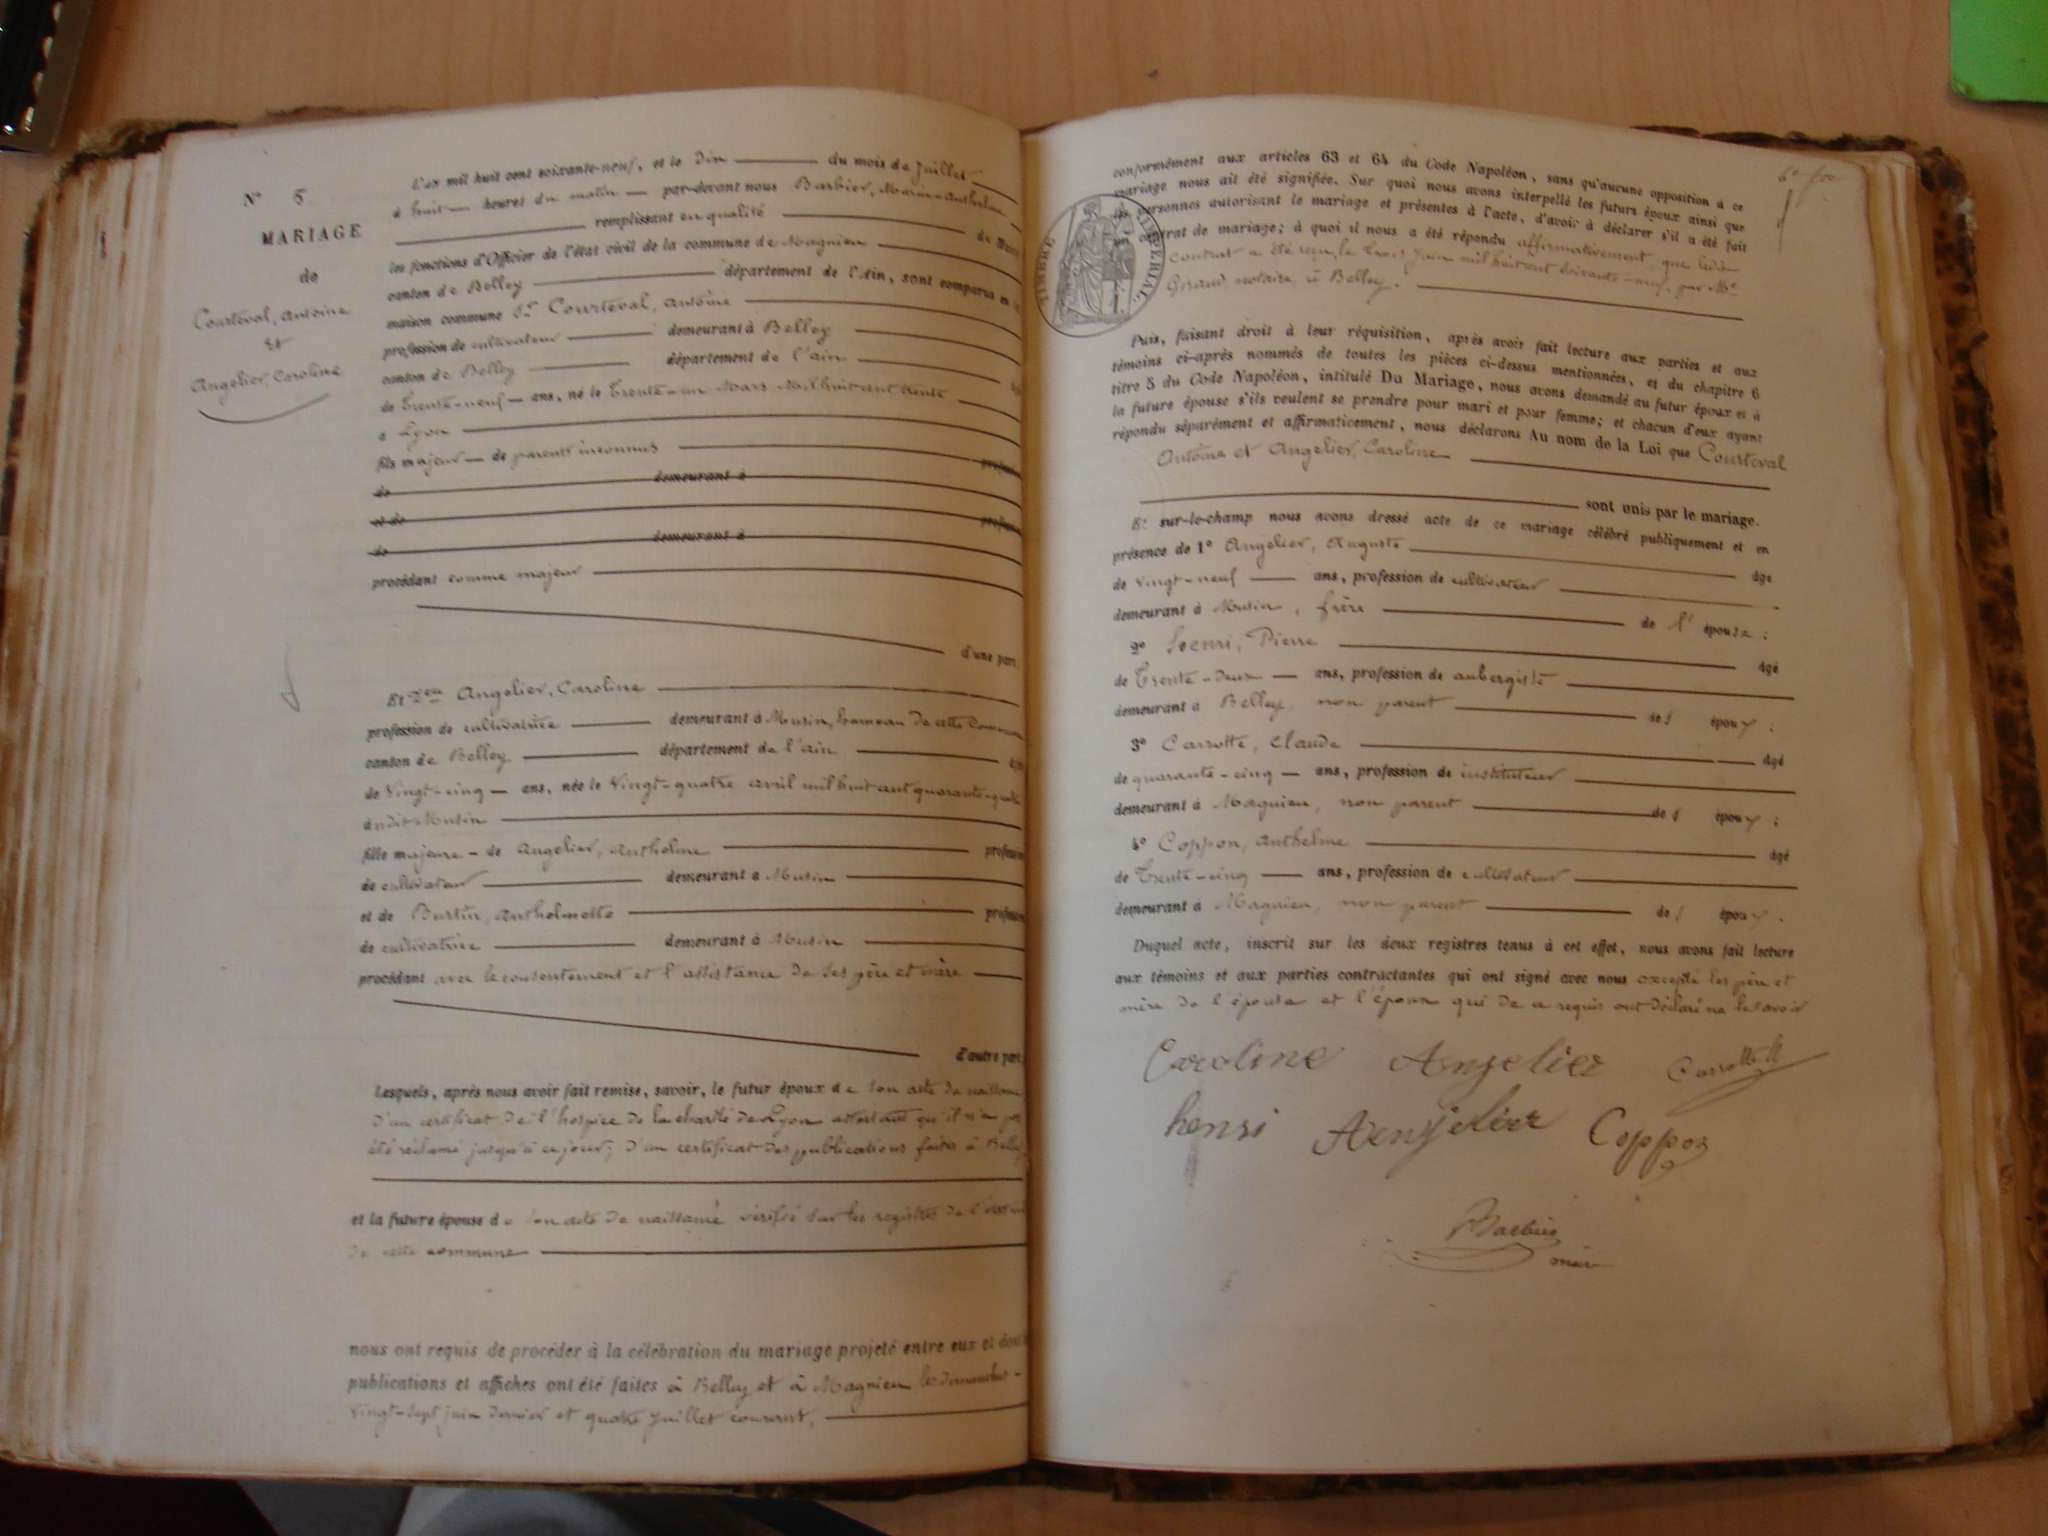 N° 5
MARIAGE
de
Courteval, Antoine
Et
Angelier, Caroline
L'an mil huit cent soixante-neuf, et le Dix du mois de Juillet
à huit heures du matin par-devant nous Barbier, Marin-Anthelme
remplissant en qualité de Maire
les fonctions d'Officier de l'état civil de la commune de Magnieu
canton de Belley département de l'Ain, sont comparus en la
maison commune Sr Courteval, Antoine
profession de cultivateur demeurant à Belley
canton de Belley département de l'ain âgé
de Trente-neuf ans, né le Trente-un Mars Mil huit cent trente
à Lyon
fils majeur de parents inconnus profession
de demeurant à
et de profession
de demeurant à
procédant comme majeur
d'une part.
Et Delle Angelier, Caroline
profession de cultivatrice demeurant à Musin, hameau de cette Commune
canton de Belley département de l'ain âgée
de Vingt-cinq ans, née le Vingt-quatre avril mil huit cent quarante-quatre
audit Musin
fille majeure de Angelier, Anthelme profession
de cultivateur demeurant à Musin
et de Burtin, Anthelmette profession
de cultivatrice demeurant à Musin
procédant avec le consentement et l'assistance de ses père et mère
d'autre part.
Lesquels, après nous avoir fait remise, savoir, le futur époux de son acte de naissance
d'un certificat de l'hospice de la charité de Lyon attestant qu'il n'a pas
été réclamé jusqu'à ce jour; d'un certificat des publications faites à Belley
et la future épouse de son acte de naissance vérifié sur les registres de l'état civil
de cette commune
nous ont requis de procéder à la célébration du mariage projeté entre eux et dont les
publications et affiches ont été faites à Belley et à Magnieu les dimanches
vingt-sept juin dernier et quatre Juillet courant,
6e fet
conformément aux articles 63 et 64 du Code Napoléon, sans qu'aucune opposition à ce
mariage nous ait été signifiée. Sur quoi nous avons interpellé les futurs époux ainsi que
les personnes autorisant le mariage et présentes à l'acte, d'avoir à déclarer s'il a été fait
un contrat de mariage; à quoi il nous a été répondu affirmativement, que ledit
contrat a été reçu le trois Juin mil huit cent soixante-neuf, par Me
Giraud, notaire à Belley.
TIMBRE IMPÉRIAL
Puis, faisant droit à leur réquisition, après avoir fait lecture aux parties et aux
témoins ci-après nommés de toutes les pièces ci-dessus mentionnées, et du chapitre 6
titre 5 du Code Napoléon, intitulé Du Mariage, nous avons demandé au futur époux et à
la future épouse s'ils veulent se prendre pour mari et pour femme; et chacun d'eux ayant
répondu séparément et affirmativement, nous déclarons Au nom de la Loi que Courteval
Antoine et Angelier, Caroline
sont unis par le mariage.
Et sur-le-champ nous avons dressé acte de ce mariage célébré publiquement et en
présence de 1° Angelier, Auguste âgé
de vingt-neuf ans, profession de cultivateur
demeurant à Musin, frère de l'épouse;
2° henri, Pierre âgé
de Trente-deux ans, profession de aubergiste
demeurant à Belley, non parent des époux;
3° Carrotte, Claude âgé
de quarante-cinq ans, profession de instituteur
demeurant à Magnieu, non parent des époux;
4° Coppon, Anthelme âgé
de Trente-cinq ans, profession de cultivateur
demeurant à Magnieu, non parent des époux.
Duquel acte, inscrit sur les deux registres tenus à cet effet, nous avons fait lecture
aux témoins et aux parties contractantes qui ont signé avec nous excepté les père et
mère de l'épouse et l'époux qui de ce requis ont déclaré ne le savoir
Caroline Angelier Carrotte
henri Aengelier Coppon
Barbier
maire